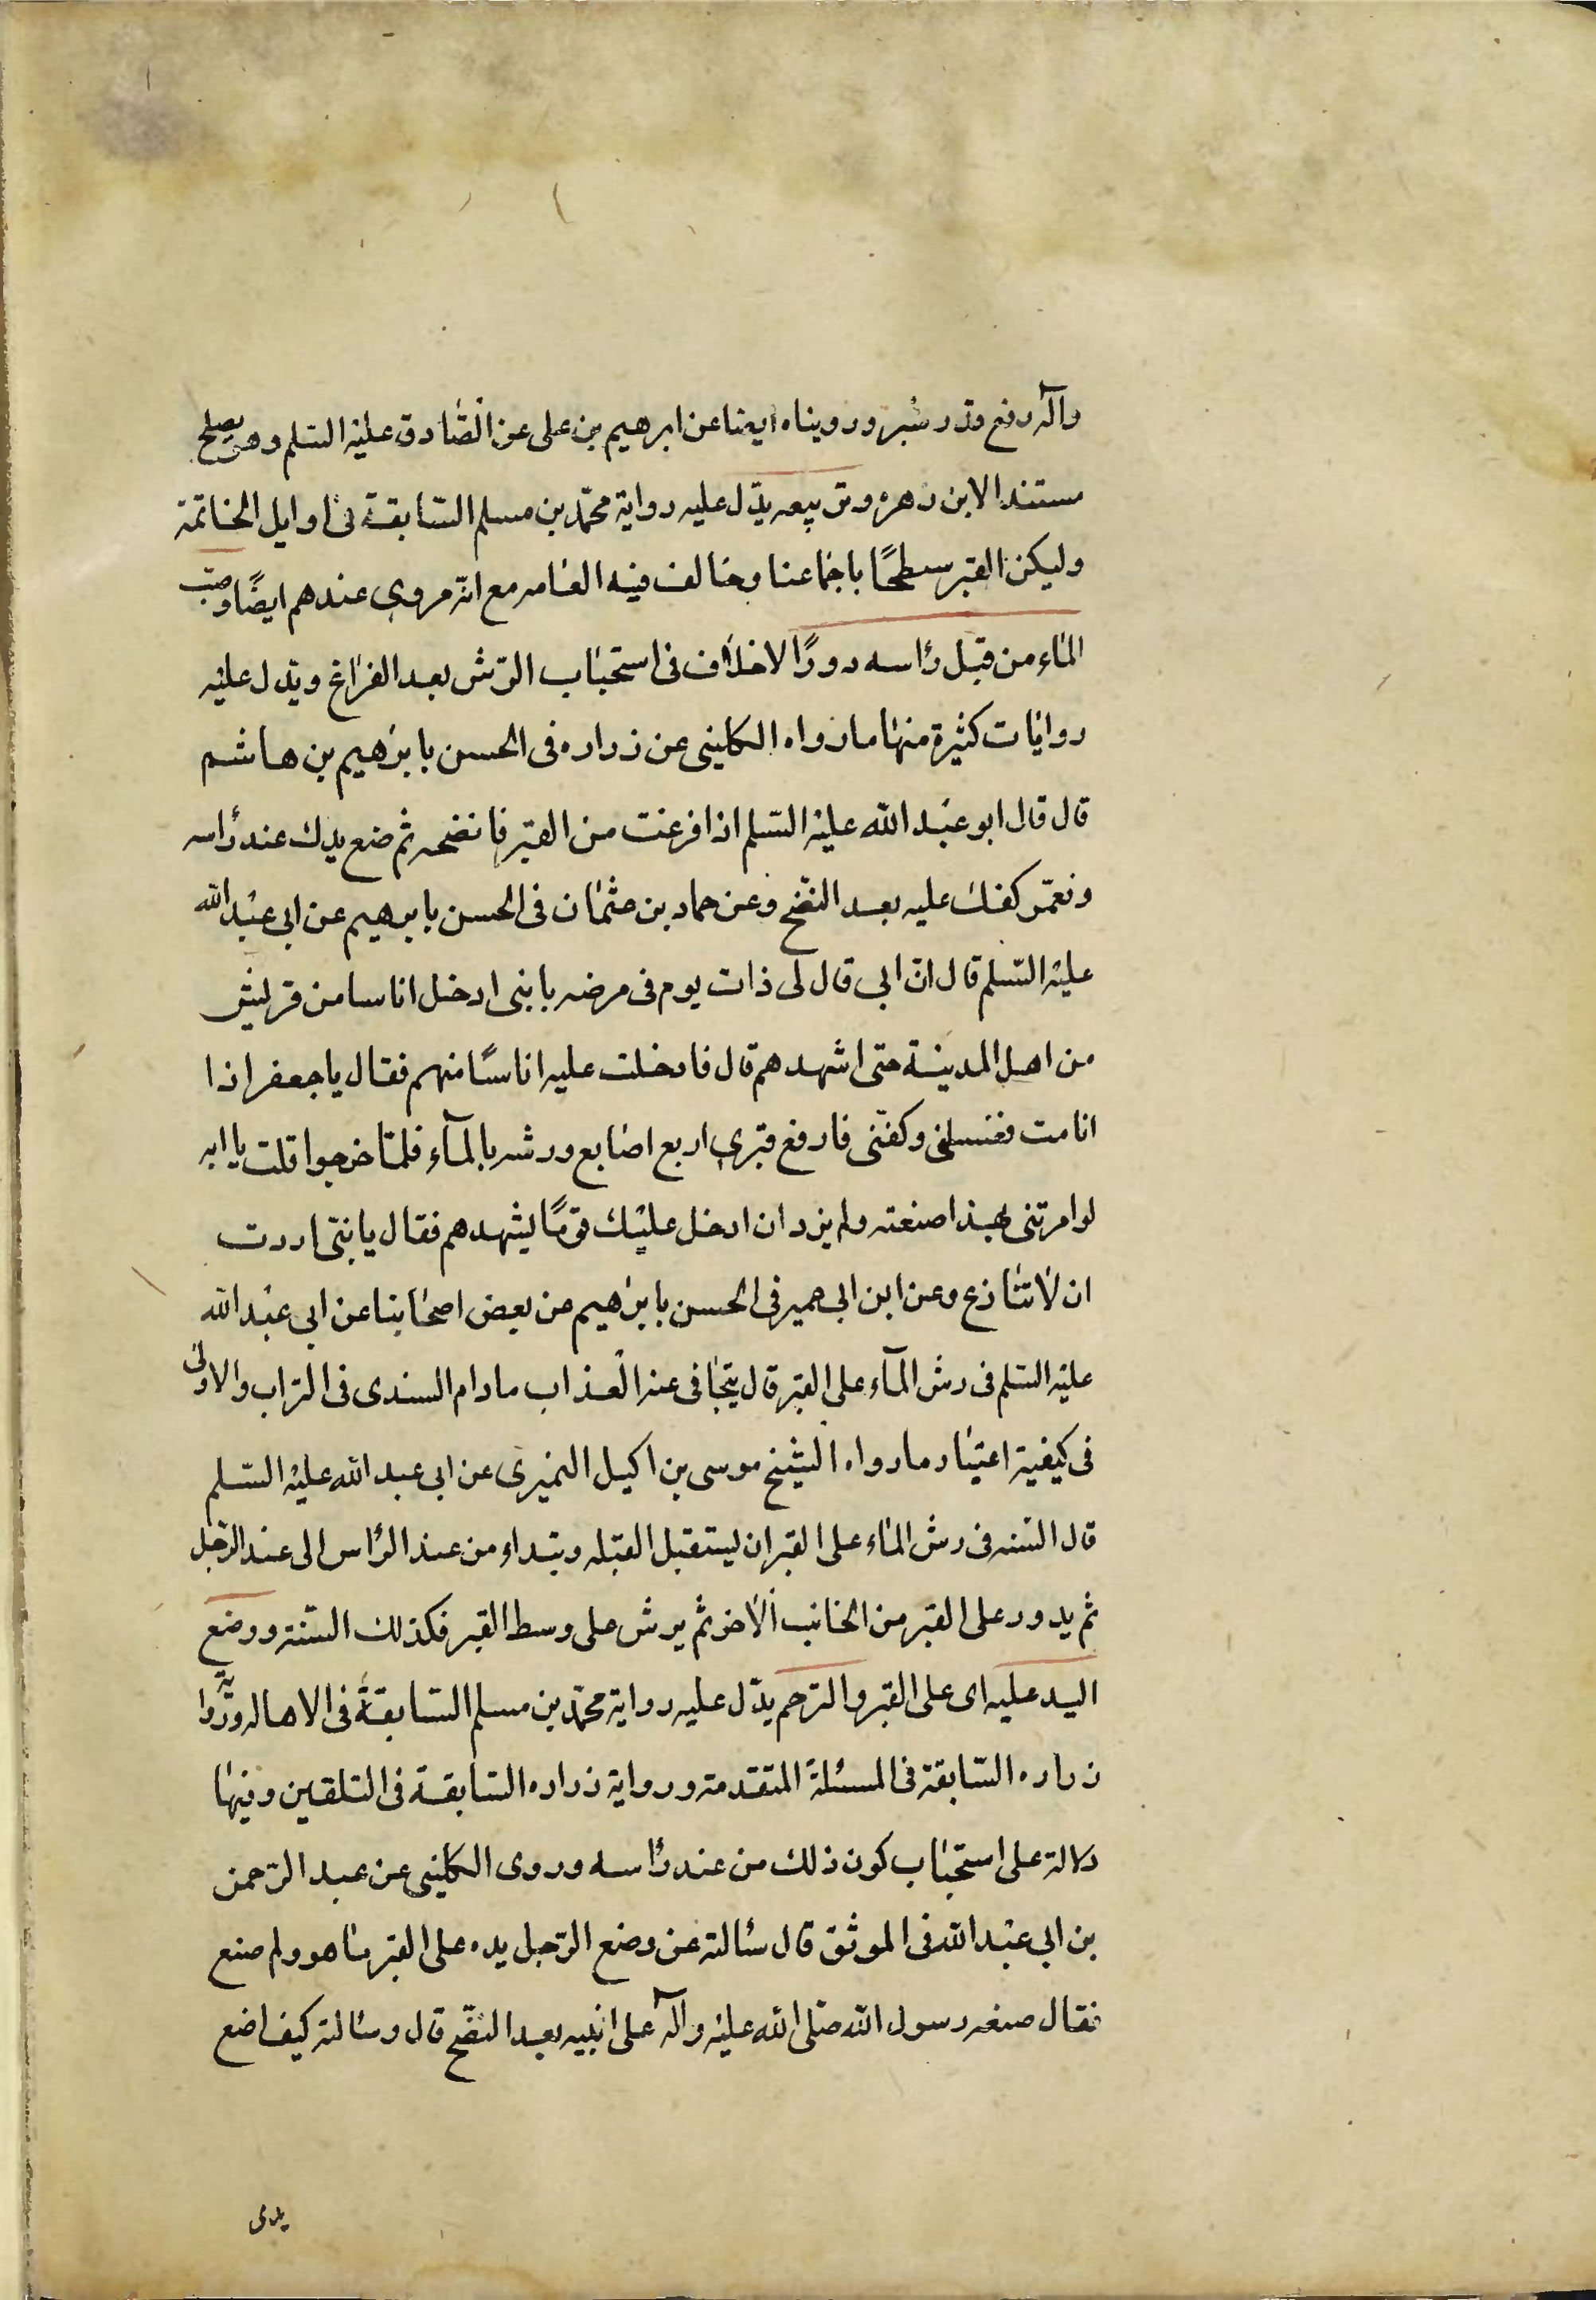 وآله رفع قدر شبر وروينا ايضا عن ابرهيم بن على عن الصّادق عليه السّلم وهو يصلح
مستندا لابن زهره ومن تبعه يدّل عليه رواية محمّد بن مسلم السّابقة فى اوايل الخاتمة
وليكن القبر سطحًا باجماعنا وخالف فيه العامه مع انّه مروي عندهم ايضًا وصب
الماء من قبل رأسه دورًا لاخلاف فى استحباب الرّش بعد الفراغ ويدل عليه
روايات كثيرة منها ما رواه الكلينى عن زراره فى الحسن بابرهيم بن هاشم
قال قال ابو عبد الله عليه السّلم اذا فرغت من القبر فانضحه ثم ضع يدك عند رأسه
وتغمّز كفك عليه بعد النّضح وعن حماد بن عثمان فى الحسن بابرهيم عن ابى عبد الله
عليه السّلم قال انّ ابي قال لى ذات يوم فى مرضه يا بنى ادخل اناسا من قريش
من اهل المدينة حتى اشهدهم قال فادخلت عليه اناسًا منهم فقال يا جعفر اذا
انا مت فغسلنى وكفّنى فارفع قبرى اربع اصابع ورشه بالمآء فلمّا خرجوا قلت يا ابه
لو امرتنى بهذا صنعته ولم يزد ان ادخل عليك قومًا يشهدهم فقال يا بنّى اردت
ان لا تنازع وعن ابن ابي عمير فى الحسن بابرهيم عن بعض اصحابنا عن ابى عبد الله
عليه السّلم فى رش المآء على القبر قال يتجافى عنه العذاب مادام الندى فى التراب والاولى
فى كيفية اعتبار مارواه الشيخ موسى بن اكيل النميرى عن ابى عبد الله عليه السّلم
قال السّنه فى رش الماء على القبر ان يستقبل القبله ويبداء من عند الرأس الى عند الرّجل
ثم يدور على القبر من الجانب الاخر ثم يرش على وسط القبر فكذلك السّنة ووضع
اليد عليه اى على القبر والترحم يدّل عليه رواية محمّد بن مسلم السّابقة فى الاهاله ورّوا
زراره السّابقة فى المسئلة المتقدمة ورواية زراره السّابقة فى التلقين وفيها
دلالة على استحباب كون ذلك من عند رأسه وروى الكلينى عن عبد الرّحمن
بن ابى عبد الله فى الموثق قال سئالته عن وضع الرّجل يده على القبر ما هو ولم صنع
فقال صنعه رسول الله صلّى الله عليه وآله على ابنيه بعد النضح قال وسئالته كيف اضع
يدى